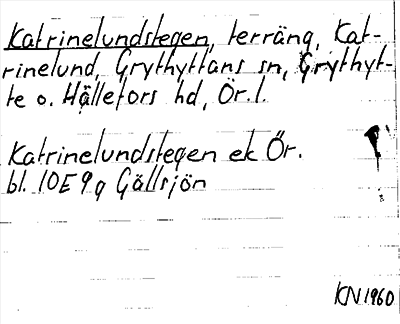 Katrinelundstegen, terräng, Kat-
rinelund, Grythyttans sn, Grythyt-
te o. Hällefors hd, Ör. l.
Katrinelundstegen ek Ör.
bl. 10E9g Gällsjön
KN1960